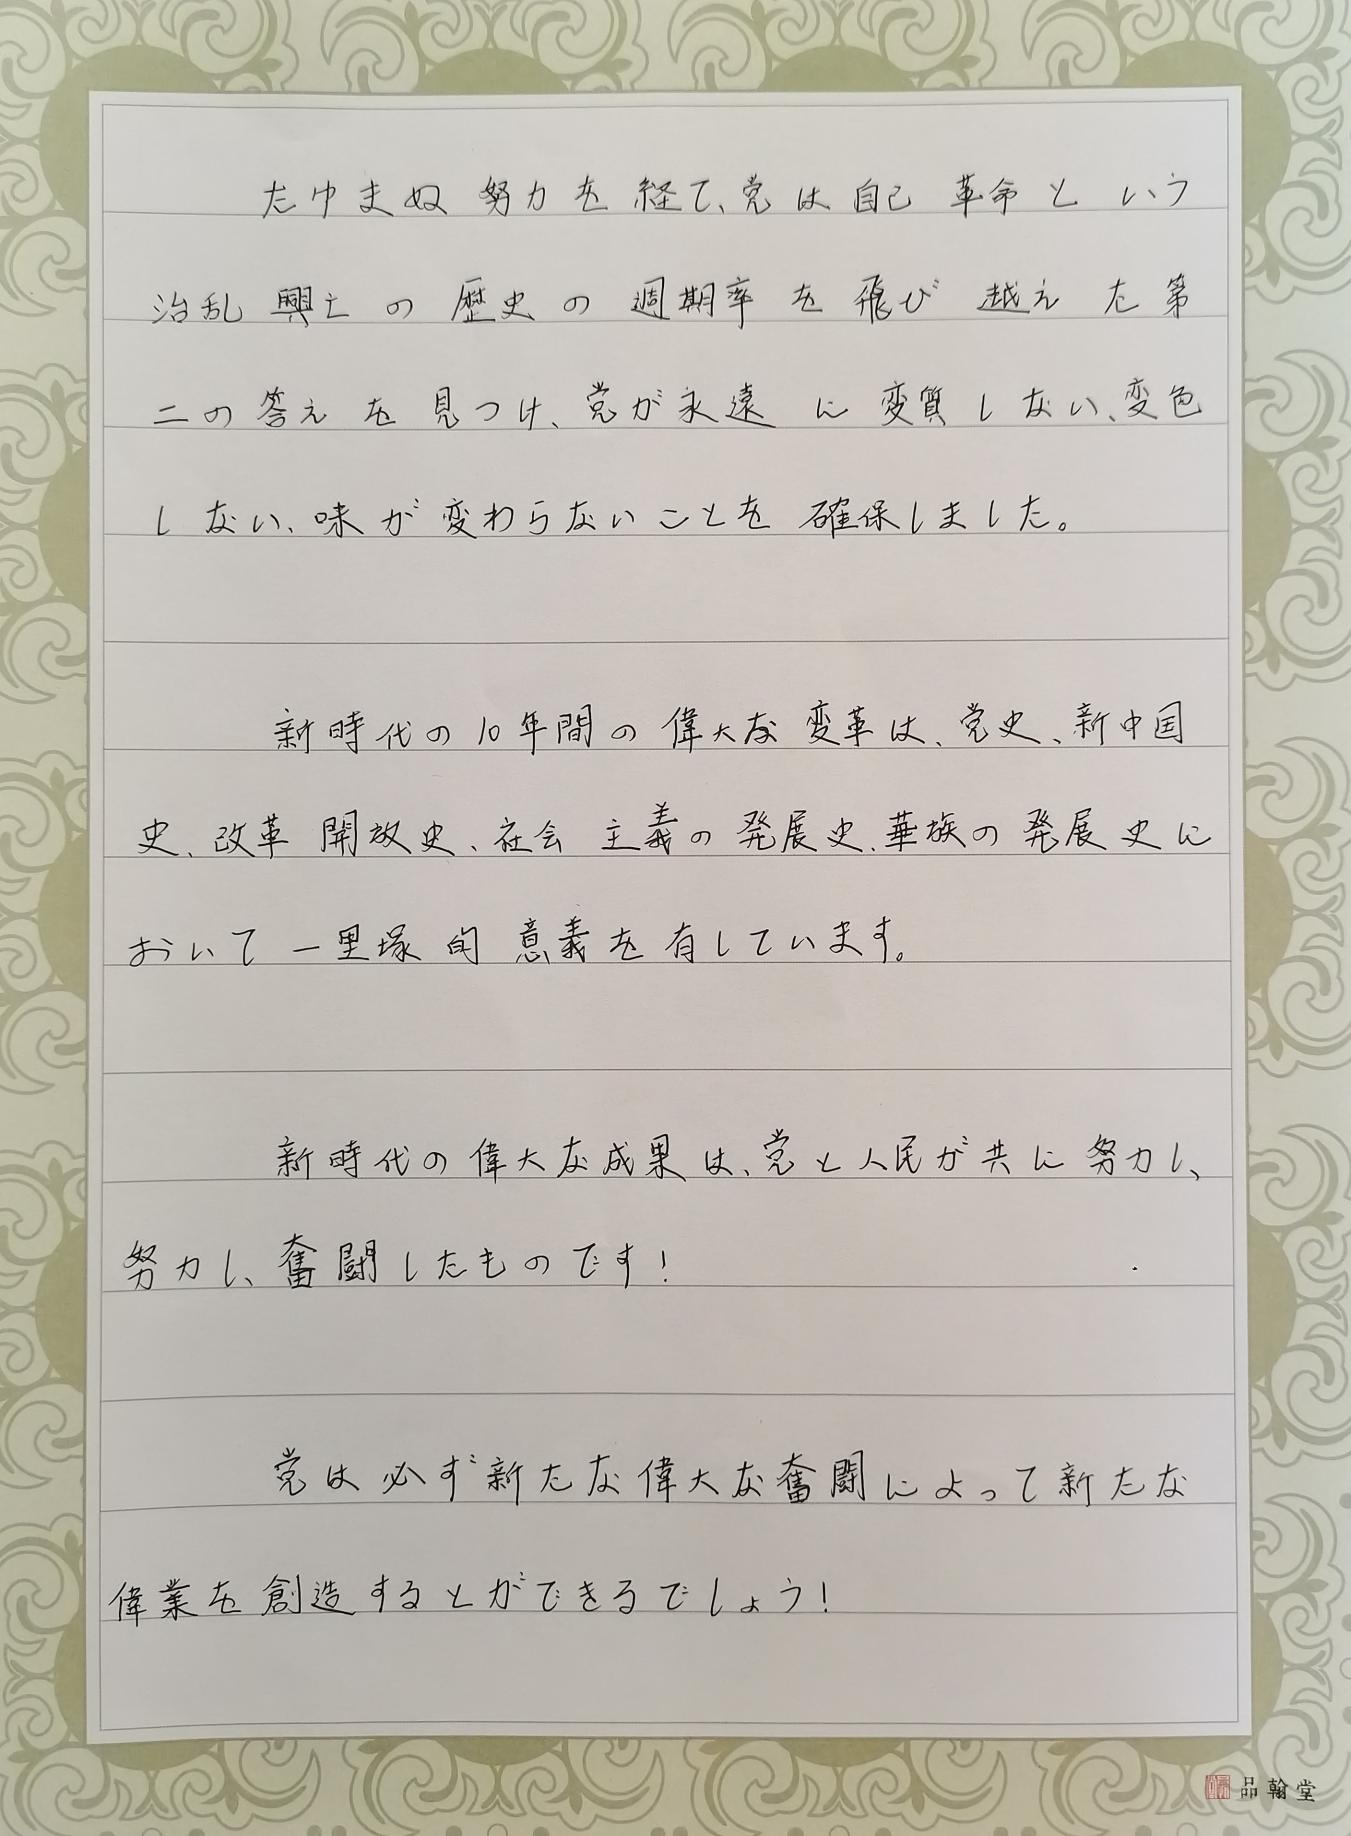 たゆまぬ努力を経て、党は自己革命という
治乱興亡の歴史の週期率を飛び越えた第
二の答えを見つけ、党が永遠に変質しない、変色
しない、味が変わらないことを確保しました。
新時代の10年間の偉大な変革は、党史、新中国
史、改革開放史、社会主義の発展史、華族の発展史に
おいて一里塚的意義を有しています。
新時代の偉大な成果は、党と人民が共に努力し、
努力し、奮闘したものです!
党は必ず新たな偉大な奮闘によって新たな
偉業を創造するとができるでしょう!
品翰堂